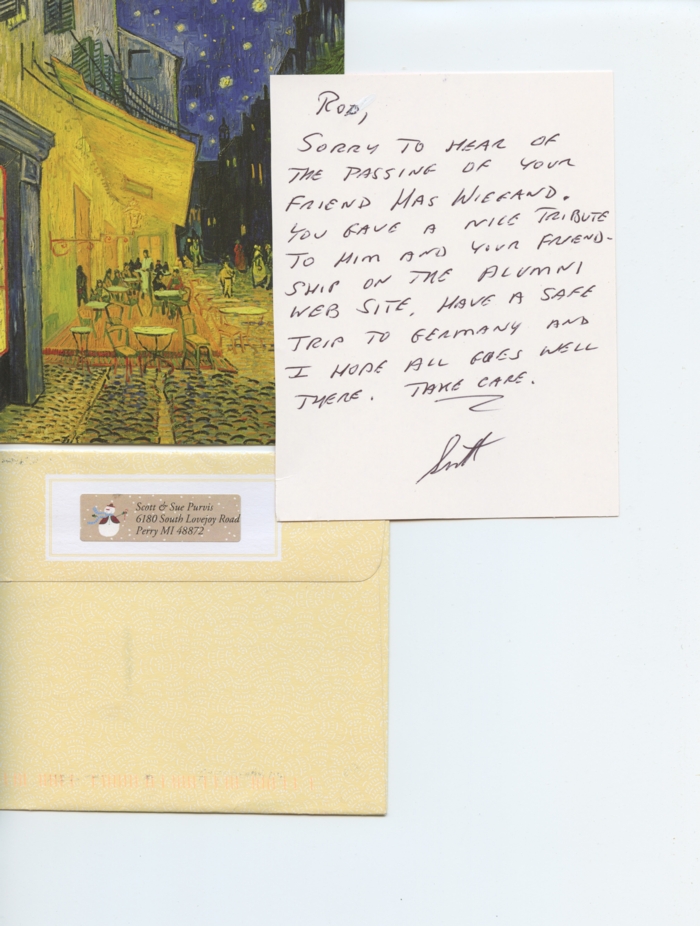 Rod,
SORRY TO HEAR OF
THE PASSING OF YOUR
FRIEND HAS WIEGAND.
YOU GAVE A NICE TRIBUTE
TO HIM AND YOUR FRIEND-
SHIP ON THE ALUMNI
WEB SITE. HAVE A SAFE
TRIP TO GERMANY AND
I HOPE ALL GOES WELL
THERE. TAKE CARE.
Scott
Scott & Sue Purvis
6180 South Lovejoy Road
Perry MI 48872